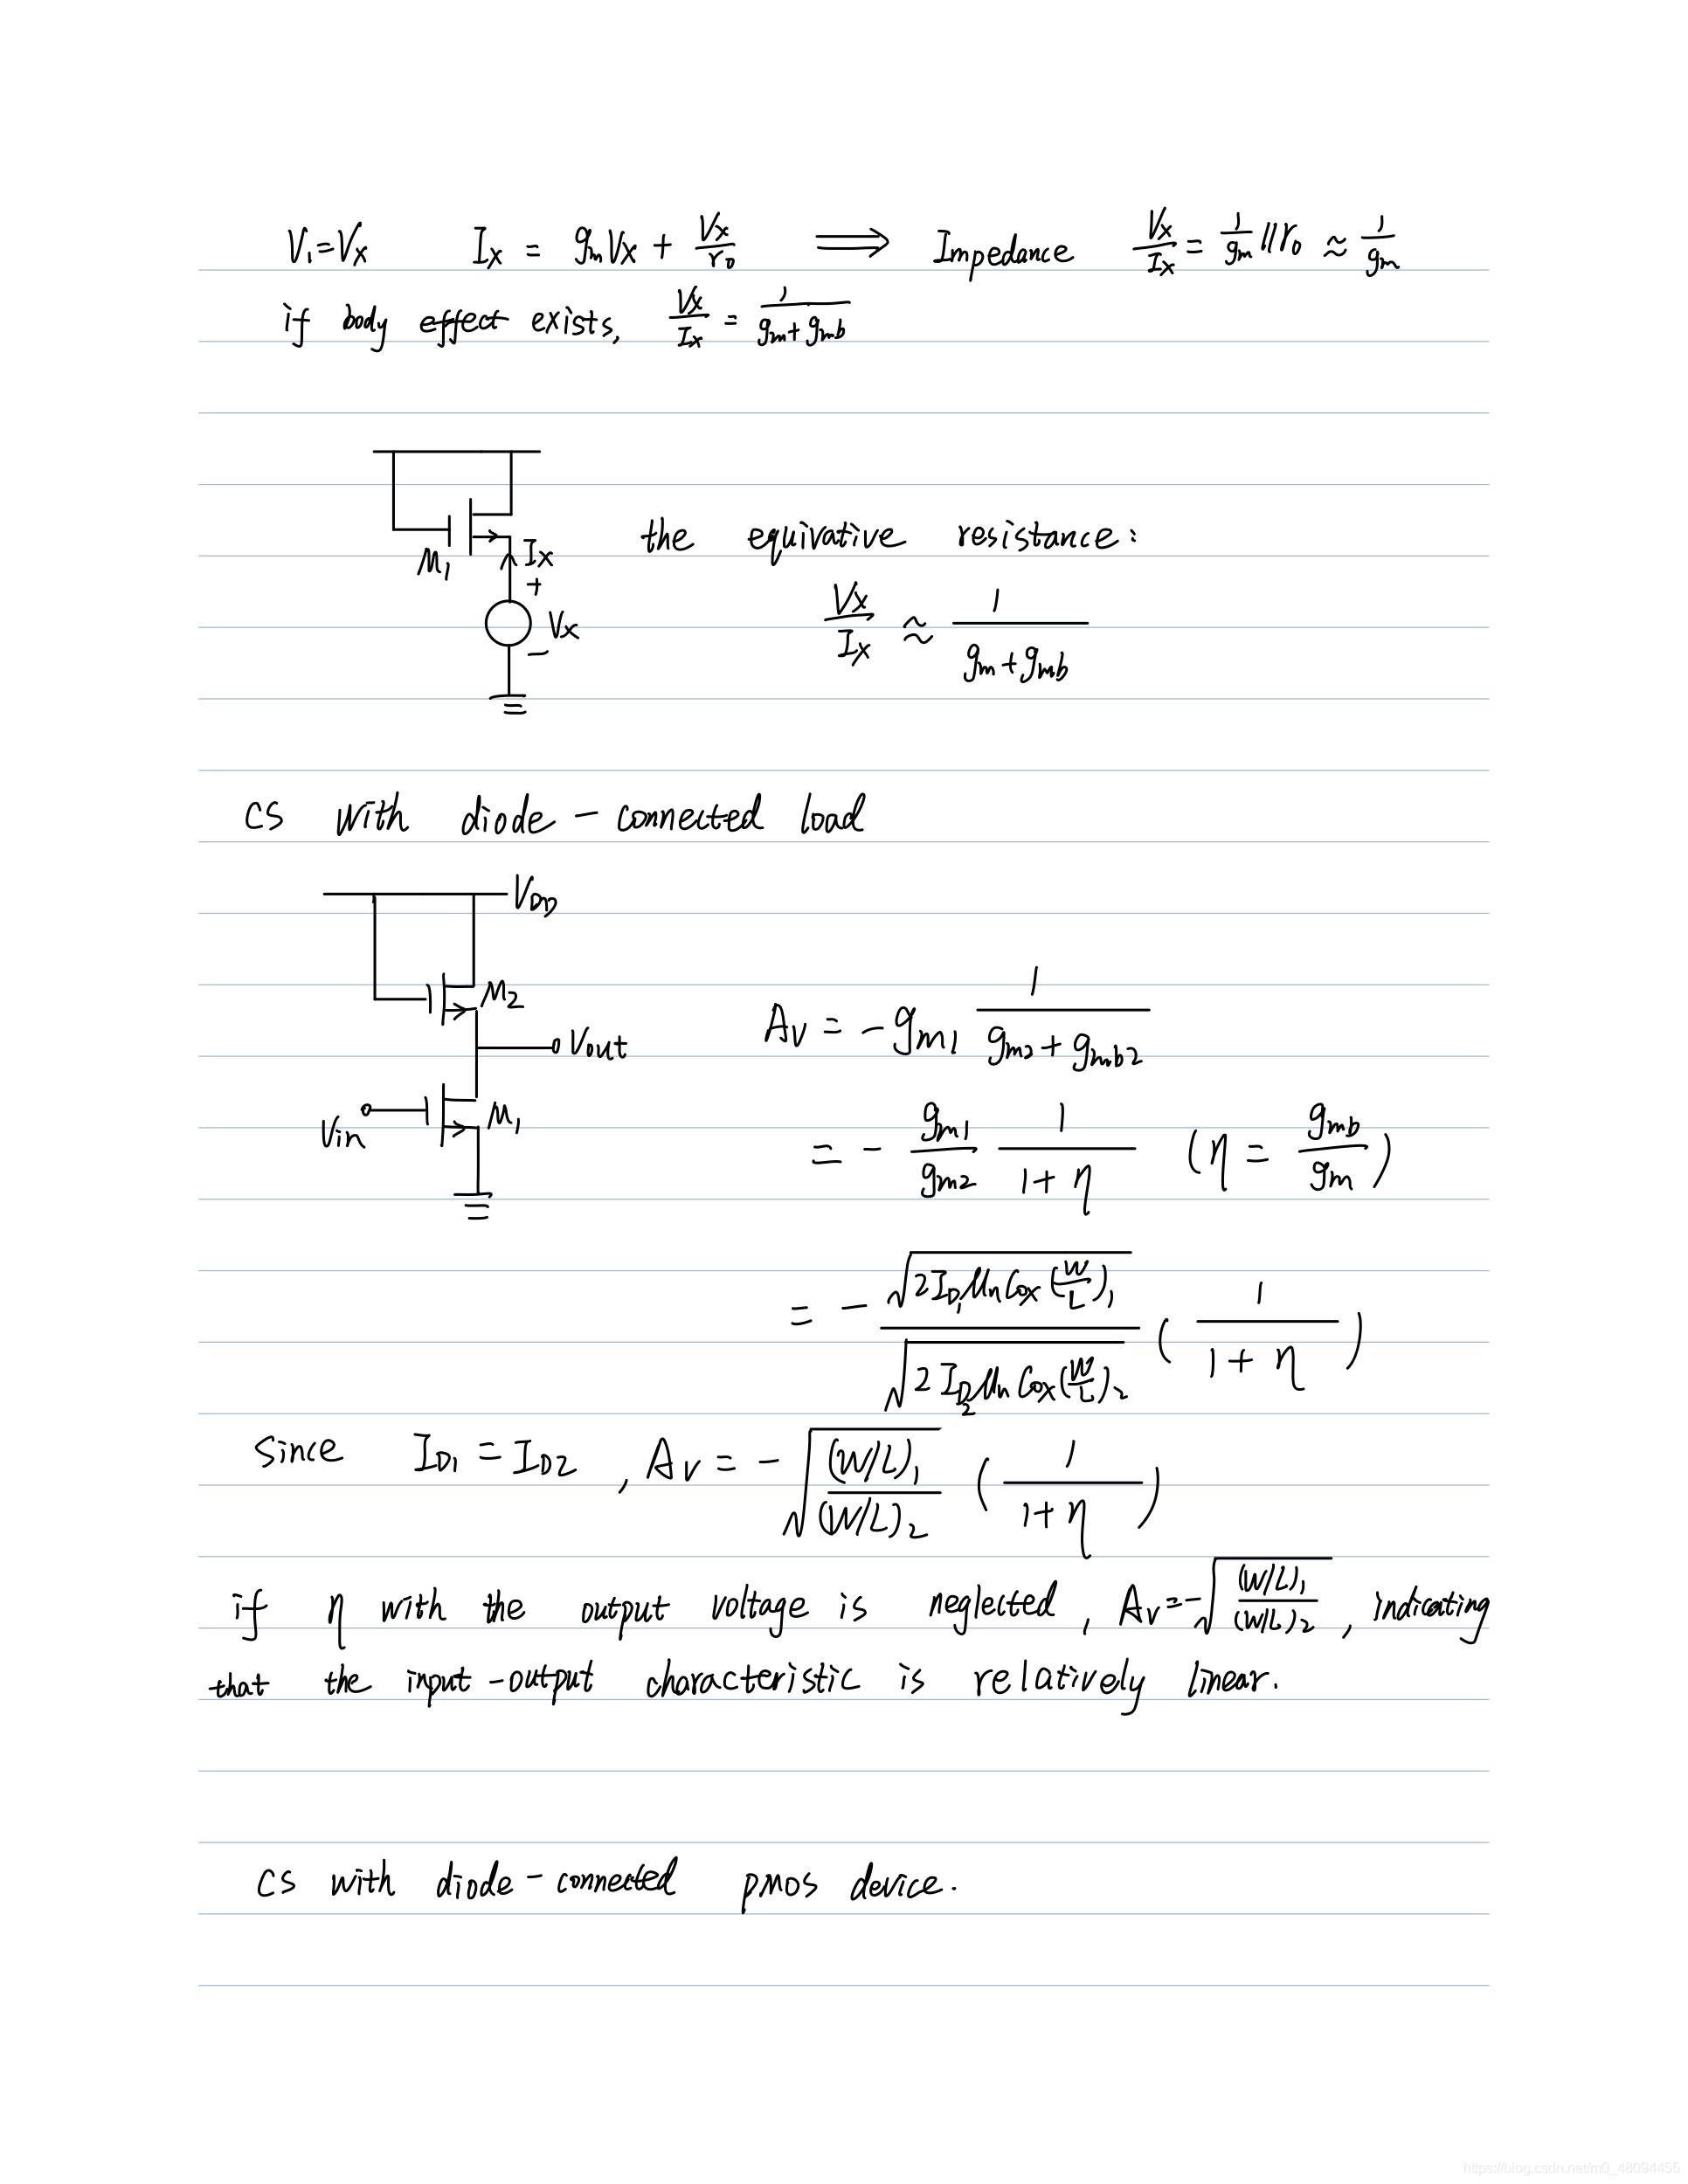 V₁=Vx    Ix = gmVx + Vx/r₀  ⟹  Impedance  Vx/Ix = 1/gm // r₀ ≈ 1/gm
if body effect exists, Vx/Ix = 1/(gm+gmb)
M₁
Ix
+
Vx
−
the equivative resistance:
Vx/Ix ≈ 1/(gm+gmb)
CS with diode-connected load
VDD
M₂
Vout
Vin
M₁
Av = −gm1 1/(gm2+gmb2)
= − gm1/gm2 1/(1+η)  (η = gmb/gm)
= − √(2ID₁μnCox(W/L)₁)/√(2ID₂μnCox(W/L)₂) (1/(1+η))
Since ID1 = ID2, Av = − √((W/L)₁/(W/L)₂) (1/(1+η))
if η with the output voltage is neglected, Av=−√((W/L)₁/(W/L)₂), indicating
that the input-output characteristic is relatively linear.
CS with diode-connected pmos device.
https://blog.csdn.net/m0_48094455